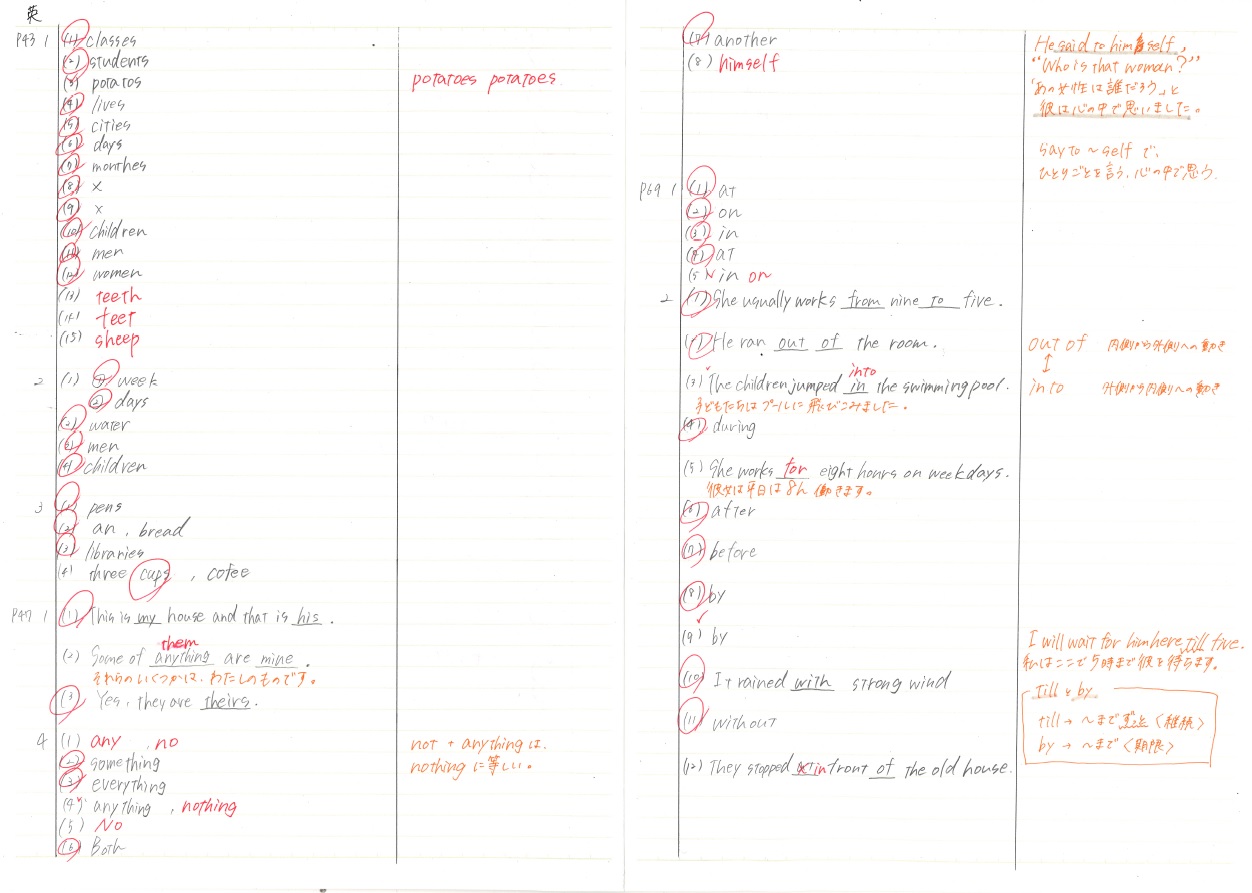 英
P43 1 (1) classes
(2) students
(3) potatos potatoes potatoes.
(4) lives
(5) cities
(6) days
(7) monthes
(8) ×
(9) ×
(10) children
(11) men
(12) women
(13) teeth
(14) feet
(15) sheep
2 (1) ① week
② days
(2) water
(3) men
(4) children
3 (1) pens
(2) an , bread
(3) libraries
(4) three cups , cofee
P47 1 (1) This is my house and that is his .
them
(2) Some of anything are mine .
それらのいくつかは、わたしのものです。
(3 Yes, they are theirs .
4 (1) any , no not + anything は、
(2) something nothing に等しい。
(3) everything
(4) anything , nothing
(5) No
(6) Both
(7) another
(8) himself
He said to himself,
"Who is that woman?"
「あの女性は誰だろう」と
彼は心の中で思いました。
say to ~ self で、
ひとりごとを言う、心の中で思う
P69 1 (1) at
(2) on
(3) in
(4) at
(5 in on
2 (1) She usually works from nine to five .
He ran out of the room . out of 内側から外側への動き
↕
into
(3) The children jumped in the swimming pool . into 外側から内側への動き
子どもたちはプールに飛びこみました。
(4) during
(5) She works for eight hours on weekdays.
彼女は平日は8h 働きます。
(6) after
(7) before
(8) by
(9) by I will wait for him here till five.
私はここで5時まで彼を待ちます。
(10) It rained with strong wind
(11) without
till と by
till → ~までずっと〈継続〉
by → ~まで〈期限〉
(12) They stopped in front of the old house.